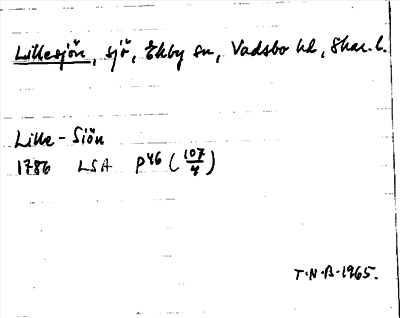 Lillesjön, sjö, Ekby sn, Vadsbo hd, Skar. l.
Lille-Siön
1786 LSA P46 (107/4)
T.N.B. 1965.